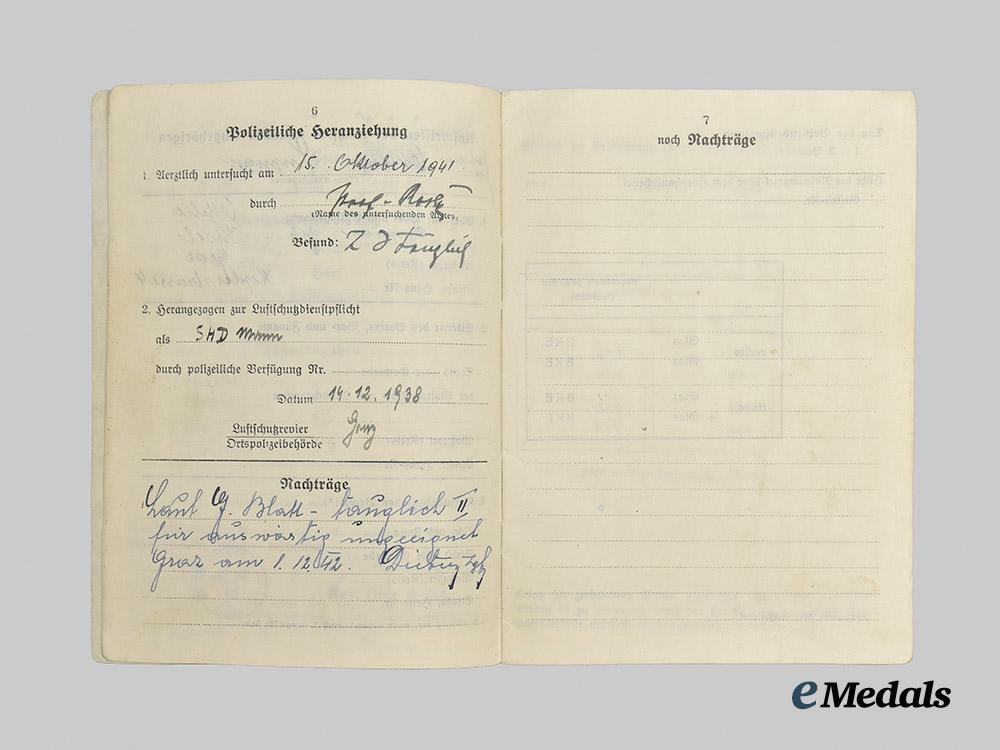 6
Polizeiliche Heranziehung
1. Aerztlich untersucht am 15. Oktober 1941
durch Prof.
(Name des untersuchenden Arztes)
Befund:
2. Herangezogen zur Luftschutzdienstpflicht
als SHD Mann
durch polizeiliche Verfügung Nr.
Datum 14.12.1938
Luftschutzrevier Graz
Ortspolizeibehörde
Nachträge
Laut G. Blatt - tauglich II
für auswärtig ungeeignet
Graz am 1.12.42.
7
noch Nachträge
eMedals